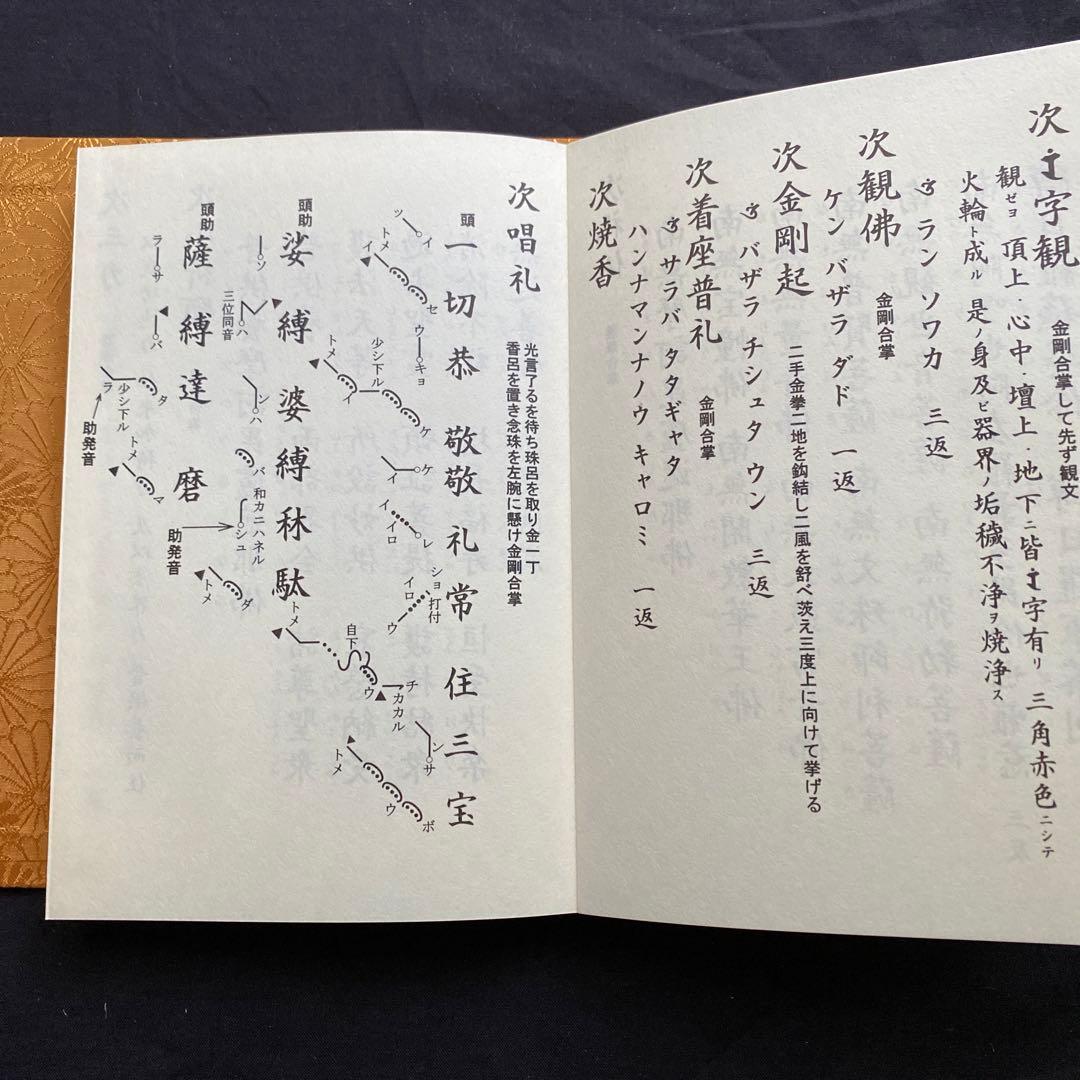 次𑖨字観 金剛合掌して先ず観文
観ゼヨ頂上・心中・壇上・地下ニ皆𑖨字有リ三角赤色ニシテ
火輪ト成ル是ノ身及ビ器界ノ垢穢不浄ヲ焼浄ス
次観佛 金剛合掌
ラン ソワカ 三返
ケン バザラ ダド 一返
次金剛起 二手金拳二地を鈎結し二風を舒べ茨え三度上に向けて挙げる
バザラ チシュタ ウン 三返
次着座普礼 金剛合掌
サラバ タタギャタ
ハンナマンナノウ キャロミ 一返
次焼香
次唱礼 光言了るを待ち珠呂を取り金一丁
香呂を置き念珠を左腕に懸け金剛合掌
頭 一切恭敬敬礼常住三宝
ッ イ トメ イ セ ウ キョ トメ イ 少シ下ル ケ ケ イ イロ レ イロ ウ ショ 打付 トメ 自下 ウ チ カカル ン サ トメ ウ ボ
頭助 娑縛婆縛秫駄
ソ 三位同音 ハ ン ハ バ 和カニハネル シュ 助発音 トメ ダ
頭助 薩縛達磨
ラ サ バ ラ 少シ下ル タ 助発音 トメ マ